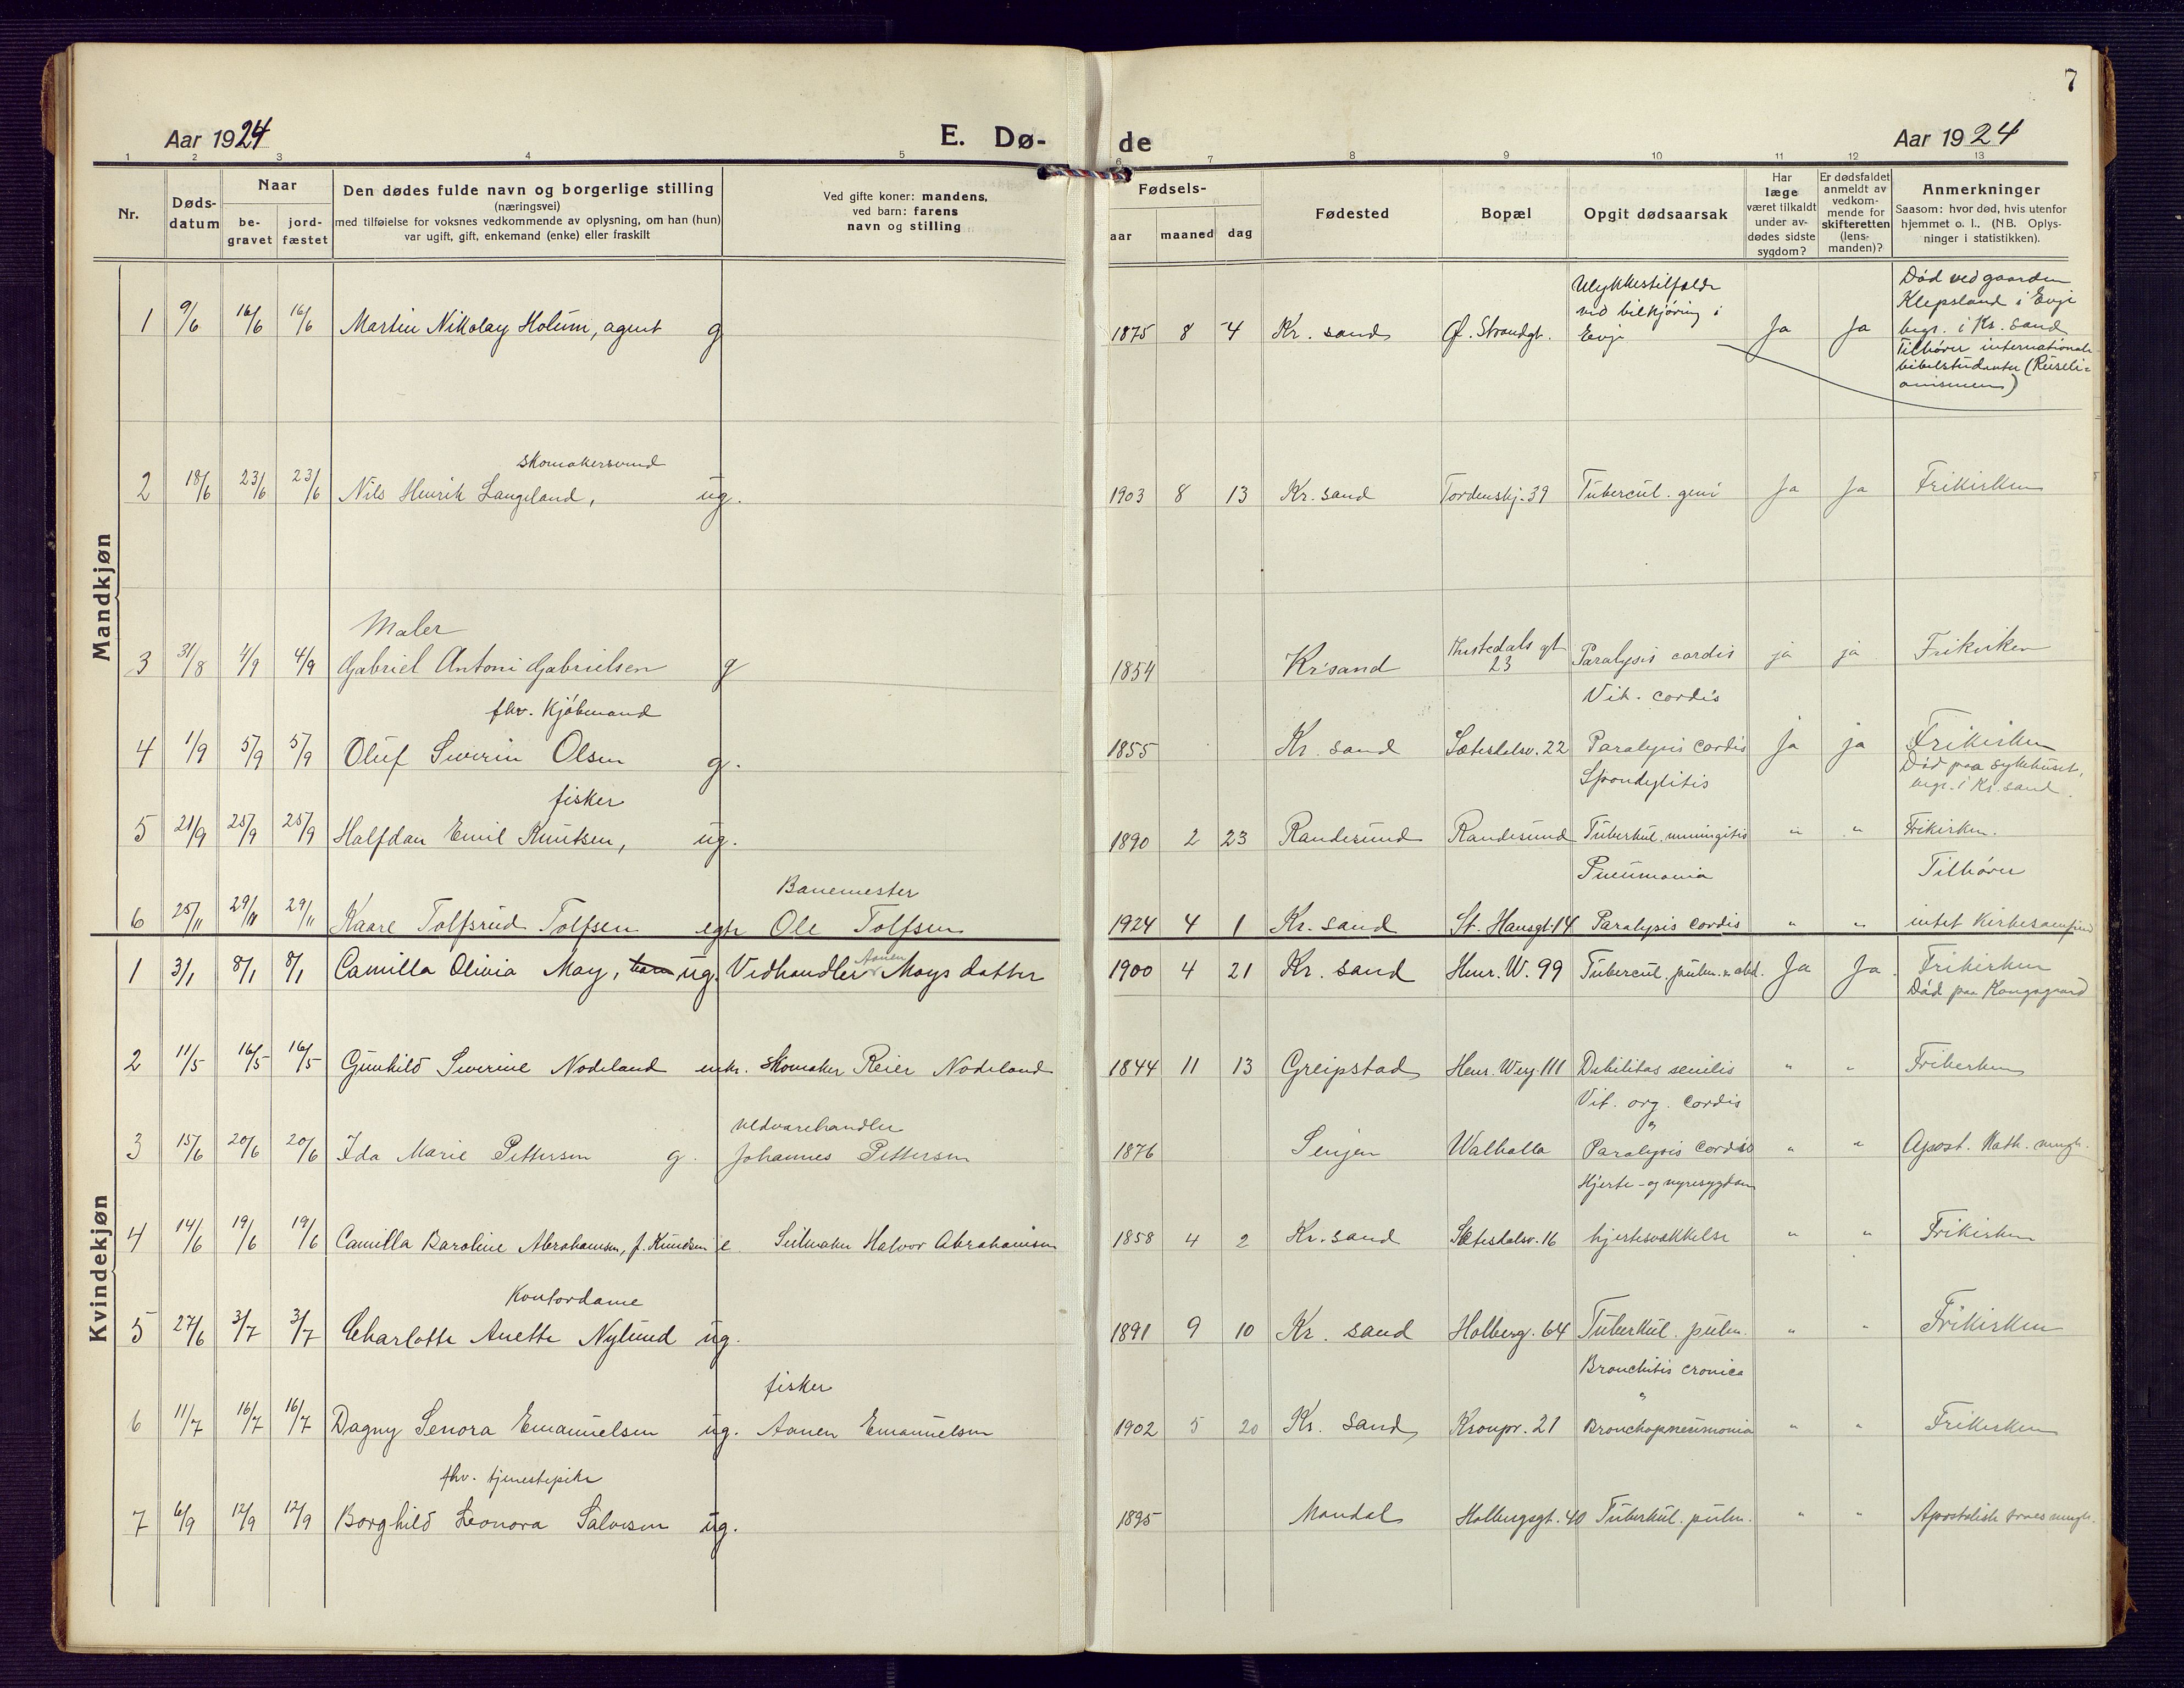 7
Aar 1924
E. Dø-
de
Aar 1924
1 2 3 4 5 6 7 8 9 10 11 12 13
Nr.
Døds-
datum
Naar
be-
gravet
jord-
fæstet
Den dødes fulde navn og borgerlige stilling
(næringsvei)
med tilføielse for voksnes vedkommende av oplysning, om han (hun)
var ugift, gift, enkemand (enke) eller fraskilt
Ved gifte koner: mandens,
ved barn: farens
navn og stilling
Fødsels-
aar maaned dag
Fødested
Bopæl
Opgit dødsaarsak
Har
læge
været tilkaldt
under av-
dødes sidste
sygdom?
Er dødsfaldet
anmeldt av
vedkom-
mende for
skifteretten
(lens-
manden)?
Anmerkninger
Saasom: hvor død, hvis utenfor
hjemmet o. l., (NB. Oplys-
ninger i statistikken).
Mandkjøn
1 9/6 16/6 16/6 Martin Nikolay Holum, agent g
1875 8 4 Kr. sand Ø. Strandgt.
Ulykkestilfælde
ved bilkjøring i
Evje
Ja Ja
Død ved gaarden
Klepsland i Evje
begr. i Kr. sand
Tilhører internationale
bibelstudenter (Russeli-
anismen)
skomakersvend
2 18/6 23/6 23/6 Nils Henrik Langeland, ug.
1903 8 13 Kr. sand Tordenskj. 39 Tubercul. genu Ja Ja Frikirken
Maler
3 31/8 4/9 4/9 Gabriel Antoni Gabrielsen g
1854 Kr'sand
gt
23
Paralysis cordis ja ja Frikirken
fhv. Kjøbmand
Vit. cordis
4 1/9 5/9 5/9 Oluf Severin Olsen g.
1855 Kr. sand Sætesdalsv. 22 Paralysis cordis ja ja Frikirken
Død paa sykehuset,
begr. i Kr. sand.
fisker
Spondylitis
5 21/9 25/9 25/9 Halfdan Emil Knutsen, ug.
1890 2 23 Randesund Randesund Tuberkul. meningitis " " Frikirken.
Banemester
Pneumonia
Tilhører
6 25/11 29/11 29/11 Kaare Tolfsrud Tolfsen egte Ole Tolfsen
1924 4 1 Kr. sand St. Hansgt. 14 Paralysis cordis " " intet kirkesamfund
Kvindekjøn
1 3/1 8/1 8/1 Camilla Olivia May, barn ug. Vedhandler Aanen Mays datter
1900 4 21 Kr. sand Henr. W. 99 Tubercul. pulm. & abd. Ja Ja. Frikirken
Død paa Kongsgaard
2 11/5 16/5 16/5 Gunhild Severine Nodeland enke. Skomaker Reier Nodeland
1844 11 13 Greipstad Henr. Werg. 111 Debilitas senilis " " Frikirken
vedvarehandler
Vit. org. cordis
&
3 15/6 20/6 20/6 Ida Marie Pettersen g. Johannes Pettersen
1876 Senjen Walhalla Paralysis cordis " " Apost. Kath. mengh.
Hjerte- og nyresygdom
4 14/6 19/6 19/6 Camilla Baroline Abrahamsen, f. Knudsen e. Seilmaker Halvor Abrahamsen
1858 4 2 Kr. sand Sætesdalsv. 16 hjertesvækkelse " " Frikirken
Kontordame
5 27/6 3/7 3/7 Charlotte Anette Nylund ug.
1891 9 10 Kr. sand Holberg. 64 Tuberkul. pulm. " " Frikirken
fisker
Bronchitis cronica
&
6 11/7 16/7 16/7 Dagny Senora Emanuelsen ug. Aanen Emanuelsen
1902 5 20 Kr. sand Kronpr. 21 Bronchopneumonia " " Frikirken
fhv. tjenestepike
7 6/9 12/9 12/9 Borghild Leonora Salvesen ug.
1895 Mandal Holbergsgt. 40 Tuberkul. pulm. " " Apostolisk troes mengh.